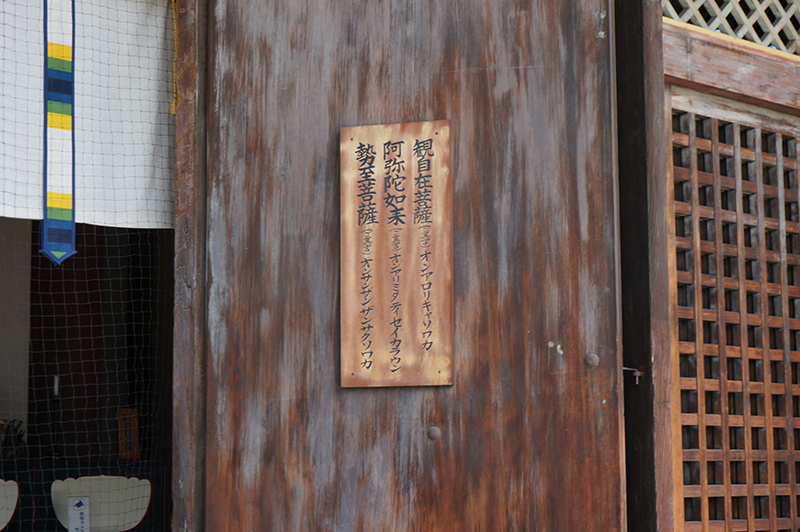 観自在菩薩（ご真言）オンアロリキャソワカ
阿弥陀如来（ご真言）オンアミリタテイセイカラウン
勢至菩薩（ご真言）オンサンザンザンサクソワカ